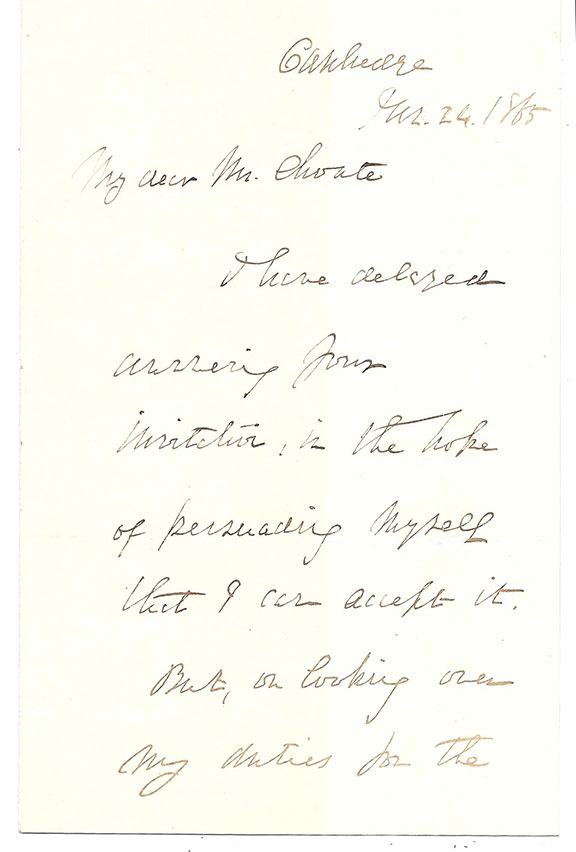 Cambridge
24. 1865
My dear Mr. Choate
I have delayed
answering your
invitation, in the hope
of persuading myself
that I can accept it.
But, on looking over
my duties for the